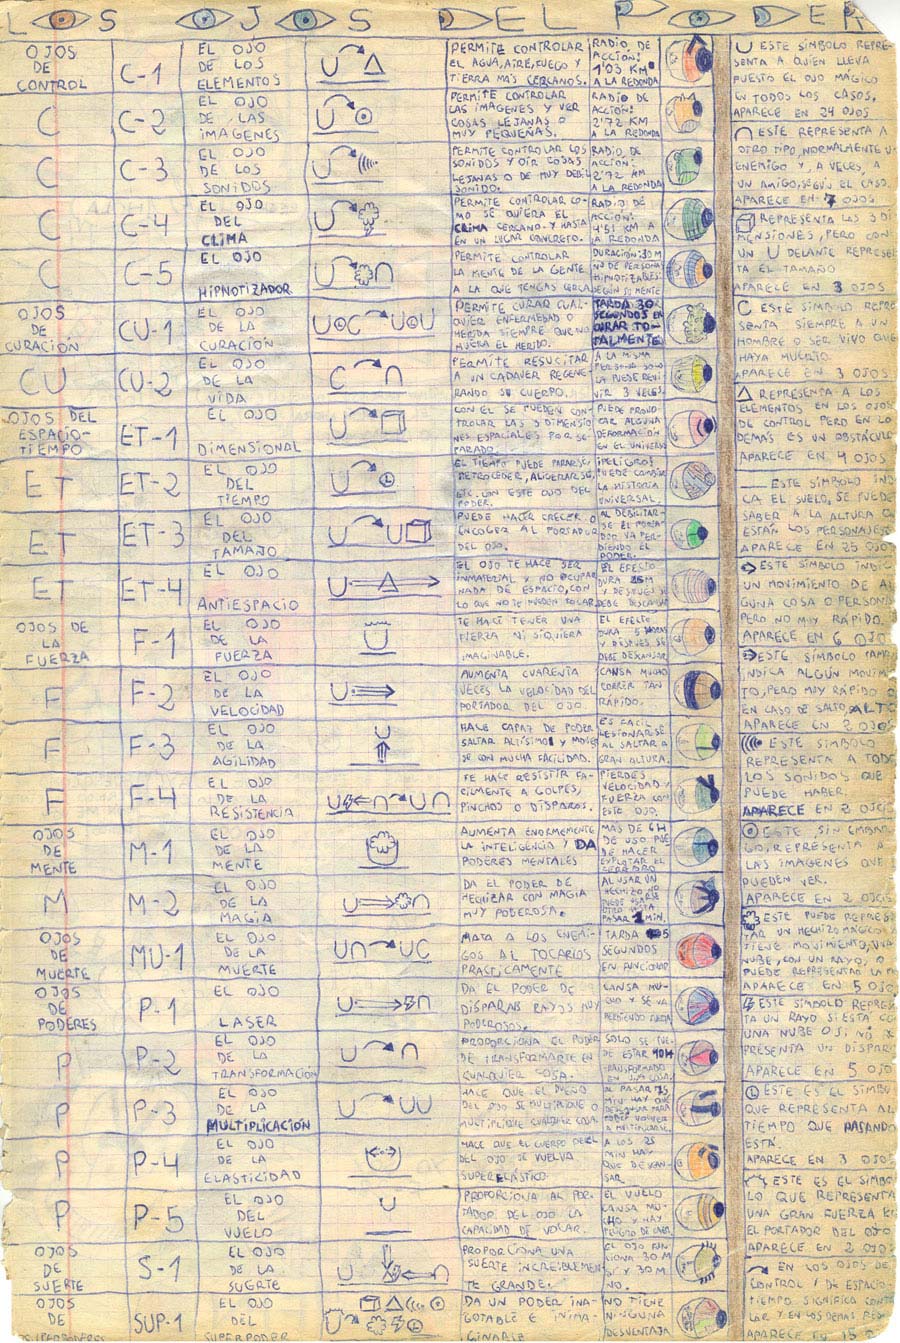 LOS OJOS DEL PODER
OJOS
DE
CONTROL
C-1
EL OJO
DE LOS
ELEMENTOS
PERMITE CONTROLAR
EL AGUA, AIRE, FUEGO Y
TIERRA MÁS CERCANOS.
RADIO DE
ACCIÓN:
1'03 KM
A LA REDONDA
C
C-2
EL OJO
DE LAS
IMÁGENES
PERMITE CONTROLAR
LAS IMÁGENES Y VER
COSAS LEJANAS O
MUY PEQUEÑAS.
RADIO DE
ACCIÓN:
2'72 KM
A LA REDONDA
C
C-3
EL OJO
DE LOS
SONIDOS
PERMITE CONTROLAR LOS
SONIDOS Y OIR COSAS
LEJANAS O DE MUY DEBIL
SONIDO.
RADIO DE
ACCIÓN:
2'72 KM
A LA REDONDA
C
C-4
EL OJO
DEL
CLIMA
PERMITE CONTROLAR CO-
MO SE QUIERA EL
CLIMA CERCANO Y HASTA
EN UN LUGAR CONCRETO.
RADIO DE
ACCIÓN:
4'51 KM A
LA REDONDA
C
C-5
EL OJO
HIPNOTIZADOR
PERMITE CONTROLAR
LA MENTE DE LA GENTE
A LA QUE TENGAS CERCA.
DURACIÓN: 30 M
Nº DE PERSONAS
HIPNOTIZABLES
SEGÚN SU MENTE
OJOS
DE
CURACIÓN
CU-1
EL OJO
DE LA
CURACIÓN
PERMITE CURAR CUAL-
QUIER ENFERMEDAD O
HERIDA SIEMPRE QUE NO
MUERA EL HERIDO.
TARDA 30
SEGUNDOS EN
CURAR TO-
TALMENTE
CU
CU-2
EL OJO
DE LA
VIDA
PERMITE RESUCITAR
A UN CADAVER REGENE-
RANDO SU CUERPO.
A LA MISMA
PERSONA SOLO
LA PUEDE REVI-
VIR 3 VECES.
OJOS DEL
ESPACIO-
TIEMPO
ET-1
EL OJO
DIMENSIONAL
CON EL SE PUEDEN CON-
TROLAR LAS 3 DIMENSIO-
NES ESPACIALES POR SE-
PARADO.
PUEDE PROVO-
CAR ALGUNA
DEFORMACIÓN
EN EL UNIVERSO
ET
ET-2
EL OJO
DEL
TIEMPO
EL TIEMPO PUEDE PARARSE,
RETROCEDER, ALIGERARSE,
ETC. CON ESTE OJO DEL
PODER.
¡PELIGRO!
PUEDE CAMBIAR
LA HISTORIA
UNIVERSAL.
ET
ET-3
EL OJO
DEL
TAMAÑO
PUEDE HACER CRECER O
ENCOGER AL PORTADOR
DEL OJO.
AL DEBILITAR-
SE EL PORTA-
DOR VA PER-
DIENDO EL
PODER.
ET
ET-4
EL OJO
ANTIESPACIO
EL OJO TE HACE SER
INMATERIAL Y NO OCUPAR
NADA DE ESPACIO, CON
LO QUE NO TE PUEDEN TOCAR.
EL EFECTO
DURA 25M
Y DESPUES SE
DEBE DESCANSAR
OJOS DE
LA
FUERZA
F-1
EL OJO
DE LA
FUERZA
TE HACE TENER UNA
FUERZA NI SIQUIERA
IMAGINABLE.
EL EFECTO
DURA 5 HORAS
Y DESPUES SE
DEBE DESCANSAR
F
F-2
EL OJO
DE LA
VELOCIDAD
AUMENTA CUARENTA
VECES LA VELOCIDAD DEL
PORTADOR DEL OJO.
CANSA MUCHO
CORRER TAN
RÁPIDO.
F
F-3
EL OJO
DE LA
AGILIDAD
HACE CAPAZ DE PODER
SALTAR ALTÍSIMO Y MOVER-
SE CON MUCHA FACILIDAD.
ES FÁCIL
LESIONARSE
AL SALTAR A
GRAN ALTURA.
F
F-4
EL OJO
DE LA
RESISTENCIA
TE HACE RESISTIR FA-
CILMENTE A GOLPES,
PINCHOS O DISPAROS.
PIERDES
VELOCIDAD Y
FUERZA CON
ESTE OJO.
OJOS
DE
MENTE
M-1
EL OJO
DE LA
MENTE
AUMENTA ENORMEMENTE
LA INTELIGENCIA Y DA
PODERES MENTALES
MÁS DE 6H
DE USO PUE-
DE HACER
EXPLOTAR EL
CEREBRO
M
M-2
EL OJO
DE LA
MAGIA
DA EL PODER DE
HECHIZAR CON MAGIA
MUY PODEROSA.
AL USAR UN
HECHIZO NO
PUEDE USARSE
OTRO HASTA
PASAR 1 MIN.
OJOS
DE
MUERTE
MU-1
EL OJO
DE LA
MUERTE
MATA A LOS ENEMI-
GOS AL TOCARLOS
PRÁCTICAMENTE
TARDA 5
SEGUNDOS
EN FUNCIONAR
OJOS
DE
PODERES
P-1
EL OJO
LASER
DA EL PODER DE
DISPARAR RAYOS MUY
PODEROSOS.
CANSA MU-
CHO Y SE VA
PERDIENDO FUERZA
P
P-2
EL OJO
DE LA
TRANSFORMACIÓN
PROPORCIONA EL PODER
DE TRANSFORMARTE EN
CUALQUIER COSA.
SOLO SE PUE-
DE ESTAR 10H
TRANSFORMADO
EN UNA COSA.
P
P-3
EL OJO
DE LA
MULTIPLICACIÓN
HACE QUE EL DUEÑO
DEL OJO SE MULTIPLIQUE O
MULTIPLIQUE CUALQUIER COSA.
AL PASAR 15
MIN HAY QUE
DESCANSAR PARA
PODER VOLVER
A MULTIPLICARSE.
P
P-4
EL OJO
DE LA
ELASTICIDAD
HACE QUE EL CUERPO DEL
DEL OJO SE VUELVA
SUPERELÁSTICO.
A LOS 25
MIN HAY
QUE DESCAN-
SAR.
P
P-5
EL OJO
DEL
VUELO
PROPORCIONA AL POR-
TADOR DEL OJO LA
CAPACIDAD DE VOLAR.
EL VUELO
CANSA MU-
CHO Y HAY
PELIGRO DE CAER
OJOS
DE
SUERTE
S-1
EL OJO
DE LA
SUERTE
PROPORCIONA UNA
SUERTE INCREIBLEMEN-
TE GRANDE.
EL OJO FUN-
CIONA 30 M
SÍ Y 30 M
NO.
OJOS
DE
SUPERPODERES
SUP-1
EL OJO
DEL
SUPERPODER
DA UN PODER INA-
GOTABLE E INIMA-
GINABLE
NO TIENE
NINGUNA
DESVENTAJA
U ESTE SÍMBOLO REPRE-
SENTA A QUIEN LLEVA
PUESTO EL OJO MÁGICO
EN TODOS LOS CASOS.
APARECE EN 24 OJOS
ESTE REPRESENTA A
OTRO TIPO, NORMALMENTE UN
ENEMIGO Y, A VECES, A
UN AMIGO, SEGÚN EL CASO.
APARECE EN 7 OJOS
REPRESENTA LAS 3 DI-
MENSIONES, PERO CON
UN U DELANTE REPRESEN-
TA EL TAMAÑO
APARECE EN 3 OJOS
C ESTE SÍMBOLO REPRE-
SENTA SIEMPRE A UN
HOMBRE O SER VIVO QUE
HAYA MUERTO.
APARECE EN 3 OJOS
REPRESENTA A LOS
ELEMENTOS EN LOS OJOS
DE CONTROL PERO EN LO
DEMÁS ES UN OBSTÁCULO
APARECE EN 4 OJOS
ESTE SÍMBOLO INDI-
CA EL SUELO, SE PUEDE
SABER A LA ALTURA QUE
ESTÁN LOS PERSONAJES
APARECE EN 25 OJOS
ESTE SÍMBOLO INDICA
UN MOVIMIENTO DE AL-
GUNA COSA O PERSONA
PERO NO MUY RÁPIDO.
APARECE EN 6 OJOS
ESTE SÍMBOLO TAMB.
INDICA ALGÚN MOVIMIEN-
TO, PERO MUY RÁPIDO O
EN CASO DE SALTO, ALTO
APARECE EN 2 OJOS
ESTE SÍMBOLO
REPRESENTA A TODOS
LOS SONIDOS QUE
PUEDE HABER.
APARECE EN 2 OJOS
ESTE, SIN EMBAR-
GO, REPRESENTA A
LAS IMÁGENES QUE
PUEDEN VER.
APARECE EN 2 OJOS
ESTE PUEDE REPRESEN-
TAR UN HECHIZO MÁGICO SI
TIENE MOVIMIENTO, UNA
NUBE, CON UN RAYO, O
PUEDE REPRESENTAR LA
APARECE EN 5 OJOS
ESTE SÍMBOLO REPRESEN-
TA UN RAYO SI ESTÁ CON
UNA NUBE O SI NO RE-
PRESENTA UN DISPARO
APARECE EN 5 OJOS
ESTE ES EL SÍMBOLO
QUE REPRESENTA AL
TIEMPO QUE PASANDO
ESTÁ.
APARECE EN 3 OJOS
ESTE ES EL SÍMBO-
LO QUE REPRESENTA
UNA GRAN FUERZA EN
EL PORTADOR DEL OJO
APARECE EN 2 OJOS
EN LOS OJOS DE
CONTROL Y DE ESPACIO-
TIEMPO SIGNIFICA CONTRO-
LAR Y EN LOS DEMÁS
APARECE EN 15